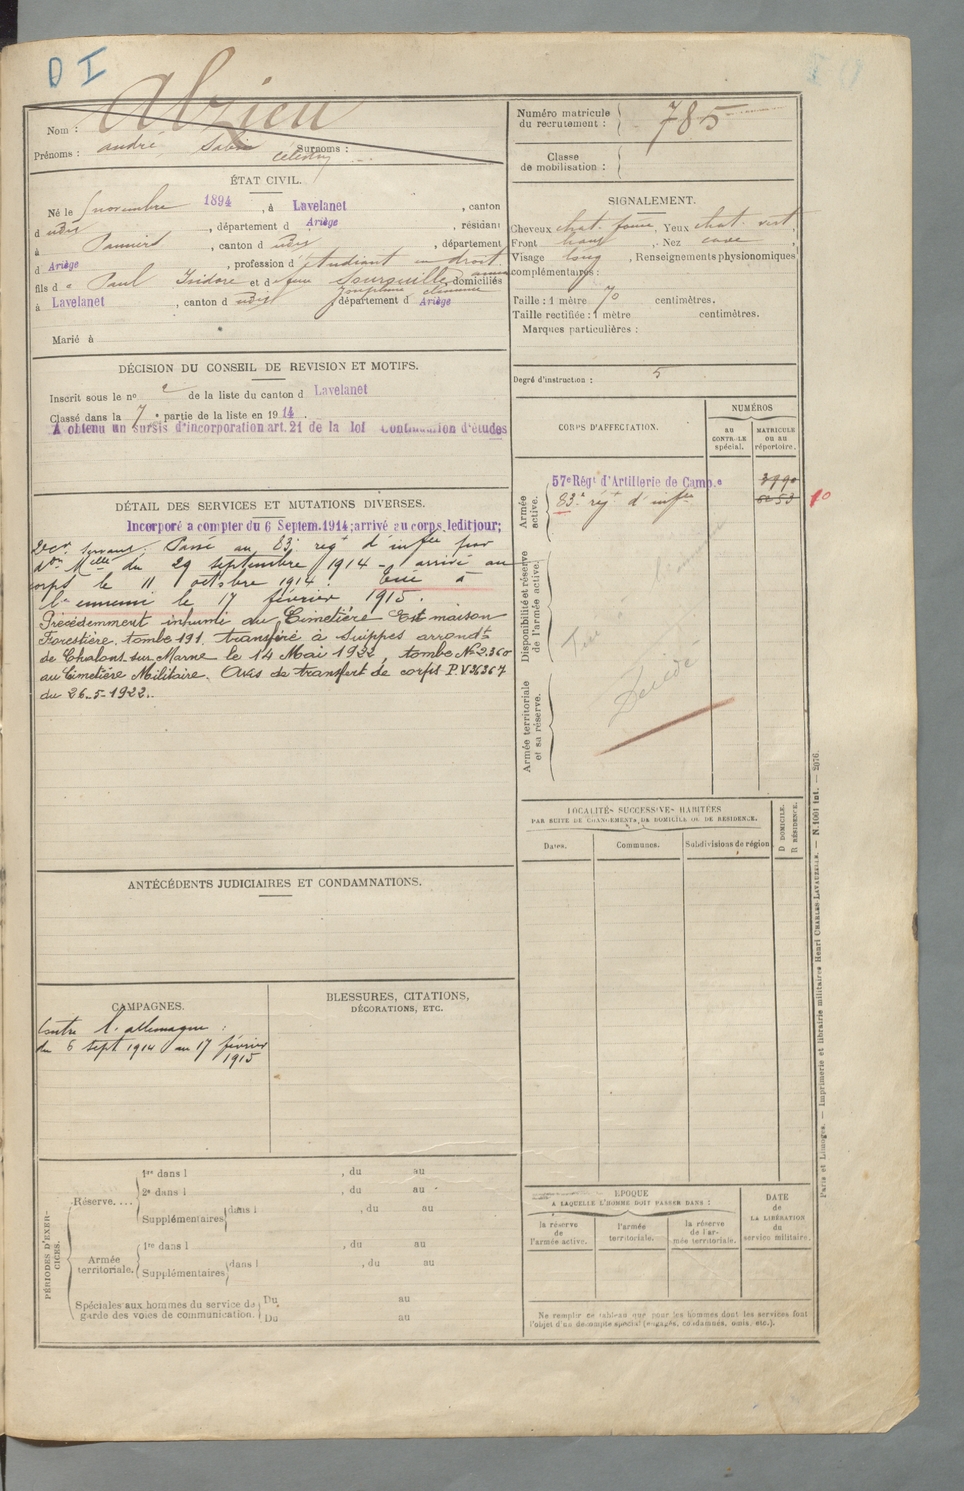 D I
Nom : Abzieu
Prénoms : André Sabin Célestin Surnoms :
Numéro matricule du recrutement : 785
Classe de mobilisation :
ÉTAT CIVIL.
Né le novembre 1894, à Lavelanet, canton
d udit, département d Ariège, résidant
à Pamiers, canton d udit, département
d Ariège, profession d étudiant en droit
fils d e Paul Isidore et d e feue domiciliés
à Lavelanet, canton d udit département d Ariège
Marié à
SIGNALEMENT.
Cheveux chat. fonc, Yeux chat. vert,
Front haut, Nez cave,
Visage long, Renseignements physionomiques
complémentaires :
Taille : 1 mètre 70 centimètres.
Taille rectifiée : 1 mètre centimètres.
Marques particulières :
Degré d'instruction : 5
DÉCISION DU CONSEIL DE REVISION ET MOTIFS.
Inscrit sous le no 2 de la liste du canton d Lavelanet
Classé dans la 7e partie de la liste en 1914.
A obtenu un sursis d'incorporation art. 21 de la loi Continuation d'études
DÉTAIL DES SERVICES ET MUTATIONS DIVERSES.
Incorporé a compter du 6 Septem. 1914; arrivé au corps ledit jour;
2e cr servant. Passé au 83e régt d'infie par
don Melle du 29 septembre 1914 - arrivé au
corps le 11 octobre 1914. Tué à
l'ennemi le 17 février 1915.
Précédemment inhumé au Cimetière Est maison
Forestière, tombe 191, transféré à Suippes arrondt
de Chalons-sur-Marne le 14 Mai 1922, tombe No 2.360
au Cimetière Militaire. Avis de transfert de corps P.V 36367
du 26-5-1922.
CORPS D'AFFECTATION.
NUMÉROS
AU CONTROLE spécial.
MATRICULE ou au répertoire.
Armée active.
57e Régt d'Artillerie de Camp.e 3790
83e régt d'infie 10
Disponibilité et réserve de l'armée active.
Tué à l'ennemi
Décédé
Armée territoriale et sa réserve.
LOCALITÉS SUCCESSIVES HABITÉES
PAR SUITE DE CHANGEMENTS DE DOMICILE OU DE RÉSIDENCE.
Dates.
Communes.
Subdivisions de région
D DOMICILE.
R RÉSIDENCE.
ANTÉCÉDENTS JUDICIAIRES ET CONDAMNATIONS.
CAMPAGNES.
Contre l'allemagne :
du 6 sept 1914 au 17 février
1915
BLESSURES, CITATIONS,
DÉCORATIONS, ETC.
PÉRIODES D'EXERCICES.
Réserve....
1re dans l , du au
2e dans l , du au
Supplémentaires dans l , du au
Armée territoriale.
1re dans l , du au
Supplémentaires dans l , du au
Spéciales aux hommes du service de
garde des voies de communication.
Du au
Du au
EPOQUE
A LAQUELLE L'HOMME DOIT PASSER DANS :
la réserve de l'armée active.
l'armée territoriale.
la réserve de l'armée territoriale.
DATE de LA LIBÉRATION du service militaire.
Ne remplir ce tableau que pour les hommes dont les services font
l'objet d'un décompte spécial (engagés, condamnés, omis, etc.).
Paris et Limoges. — Imprimerie et librairie militaires Henri CHARLES-LAVAUZELLE. — N. 1061 int. — 2076.